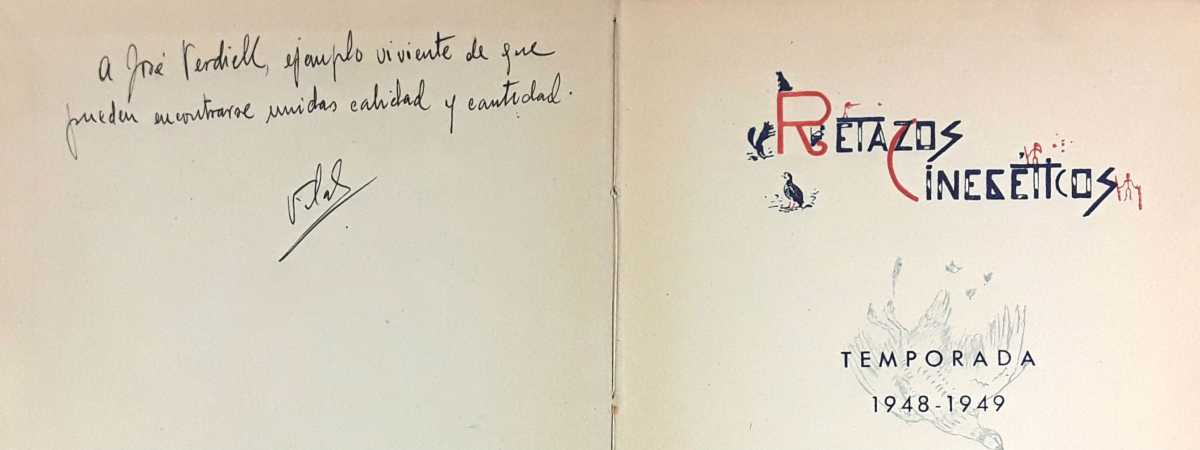 A José Verdiell, ejemplo viviente de que
pueden encontrarse unidas calidad y cantidad.
Vidal
RETAZOS
CINEGÉTICOS
TEMPORADA
1948-1949